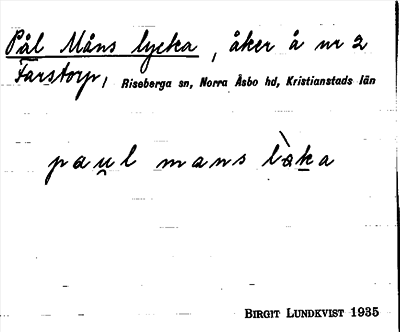 Pål Måns lycka, åker å nr 2
Farstorp, Riseberga sn, Norra Åsbo hd, Kristianstads län
pau̯l mans l<òka
BIRGIT LUNDKVIST 1935